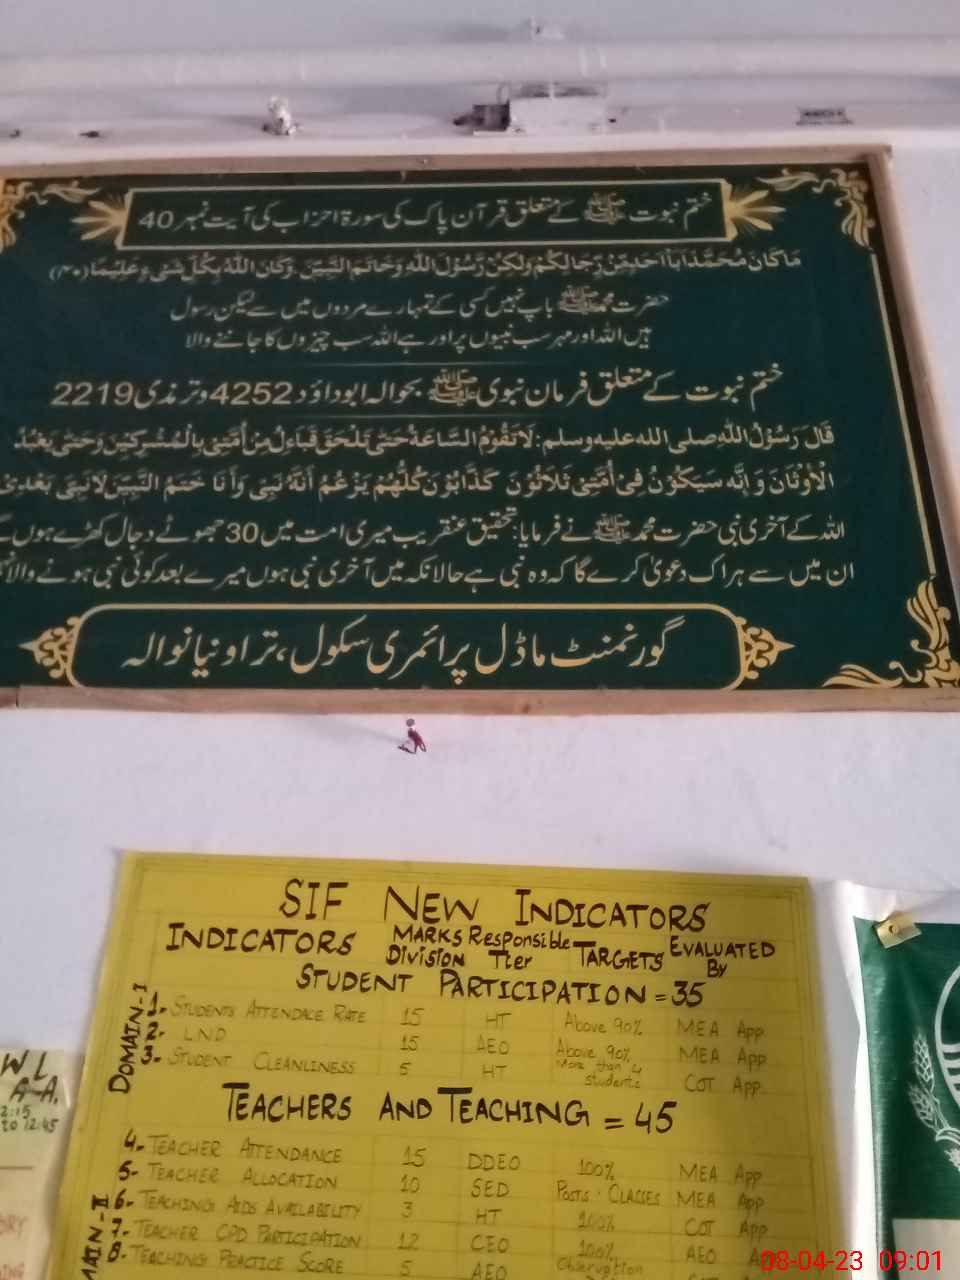 ختم نبوت ﷺ کے متعلق قرآن پاک کی سورۃ احزاب کی آیت نمبر 40
مَا كَانَ مُحَمَّدٌ اَبَآ اَحَدٍ مِّنْ رِّجَالِكُمْ وَلٰكِنْ رَّسُوْلَ اللّٰهِ وَخَاتَمَ النَّبِيّٖنَ وَكَانَ اللّٰهُ بِكُلِّ شَيْءٍ عَلِيْمًا (۴۰)
حضرت محمد ﷺ باپ نہیں کسی کے تمہارے مردوں میں سے لیکن رسول
ہیں اللہ اور مہر سب نبیوں پر اور ہے اللہ سب چیزوں کا جاننے والا
ختم نبوت کے متعلق فرمان نبوی ﷺ بحوالہ ابوداؤد 4252 و ترمذی 2219
قَالَ رَسُوْلُ اللّٰهِ صلى الله عليه وسلم: لَا تَقُوْمُ السَّاعَةُ حَتّٰى تَلْحَقَ قَبَاءِلُ مِنْ اُمَّتِيْ بِالْمُشْرِكِيْنَ وَحَتّٰى يَعْبُدُ
الْاَوْثَانَ وَ اِنَّه سَيَكُوْنُ فِيْ اُمَّتِيْ ثَلَاثُوْنَ كَذَّابُوْنَ كُلُّهُمْ يَزْعُمُ اَنَّهٗ نَبِيٌّ وَاَنَا خَتَمُ النَّبِيِّيْنَ لَا نَبِيَّ بَعْدِيْ
اللہ کے آخری نبی حضرت محمد ﷺ نے فرمایا: تحقیق عنقریب میری امت میں 30 جھوٹے دجال کھڑے ہوں گے
ان میں سے ہر اک دعویٰ کرے گا کہ وہ نبی ہے حالانکہ میں آخری نبی ہوں میرے بعد کوئی نبی ہونے والا
گورنمنٹ ماڈل پرائمری سکول، تراونیانوالہ
SIF NEW INDICATORS
INDICATORS MARKS Division Responsible Tier TARGETS EVALUATED By
STUDENT PARTICIPATION = 35
DOMAIN-I
1- STUDENTS ATTENDACE RATE 15 HT Above 90% MEA App
2- LND 15 AEO Above 90% MEA App
3- STUDENT CLEANLINESS 5 HT More than 4 students COT App
TEACHERS AND TEACHING = 45
MAIN-II
4- TEACHER ATTENDANCE 15 DDEO 100% MEA App
5- TEACHER ALLOCATION 10 SED Posts: CLASSES MEA App
6- TEACHING AIDS AVAILABILITY 3 HT 100% COT App
7- TEACHER CPD PARTICIPATION 12 CEO 100% AEO A
8- TEACHING PRACTICE SCORE 5 AEO Observation
W L
A-A.
2:15
20 12:45
08-04-23 09:01